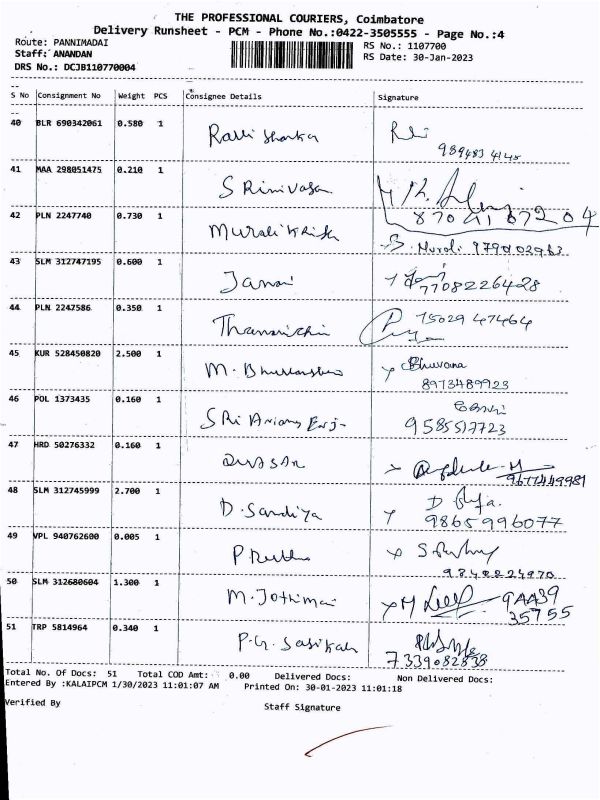 THE PROFESSIONAL COURIERS, Coimbatore
Delivery Runsheet - PCM - Phone No.:0422-3505555 - Page No.:4
Route: PANNIMADAI RS No.: 1107700
Staff: ANANDAN RS Date: 30-Jan-2023
DRS No.: DCJB110770004
S No Consignment No Weight PCS Consignee Details Signature
40 BLR 690342061 0.580 1
41 MAA 298051475 0.210 1 Srinivasan
42 PLN 2247740 0.730 1 Murali Krish
8704167204
S. Murali 9791102963
43 SLM 312747195 0.600 1 Janani
7708226428
44 PLN 2247586 0.350 1 75029 47464
45 KUR 528450820 2.500 1 Bhuvana
8973489923
46 POL 1373435 0.160 1 SRi
9585517723
47 HRD 50276332 0.160 1
48 SLM 312745999 2.700 1 D. Sandiya
9865996077
49 VPL 940762600 0.005 1
50 SLM 312680604 1.300 1 M. Jothimai
35755
51 TRP 5814964 0.340 1 P.G. Sasikala
7339082838
Total No. Of Docs: 51 Total COD Amt: 0.00 Delivered Docs: Non Delivered Docs:
Entered By :KALAIPCM 1/30/2023 11:01:07 AM Printed On: 30-01-2023 11:01:18
Verified By Staff Signature